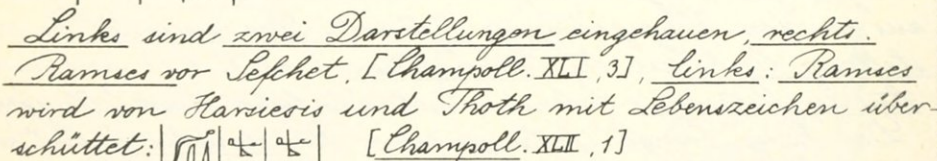 Links sind zwei Darstellungen eingehauen, rechts.
Ramses vor Sefchet, [Champoll. XLI, 3], links: Ramses
wird von Harsiesis und Thoth mit Lebenszeichen über-
schüttet: [Champoll. XLII, 1]